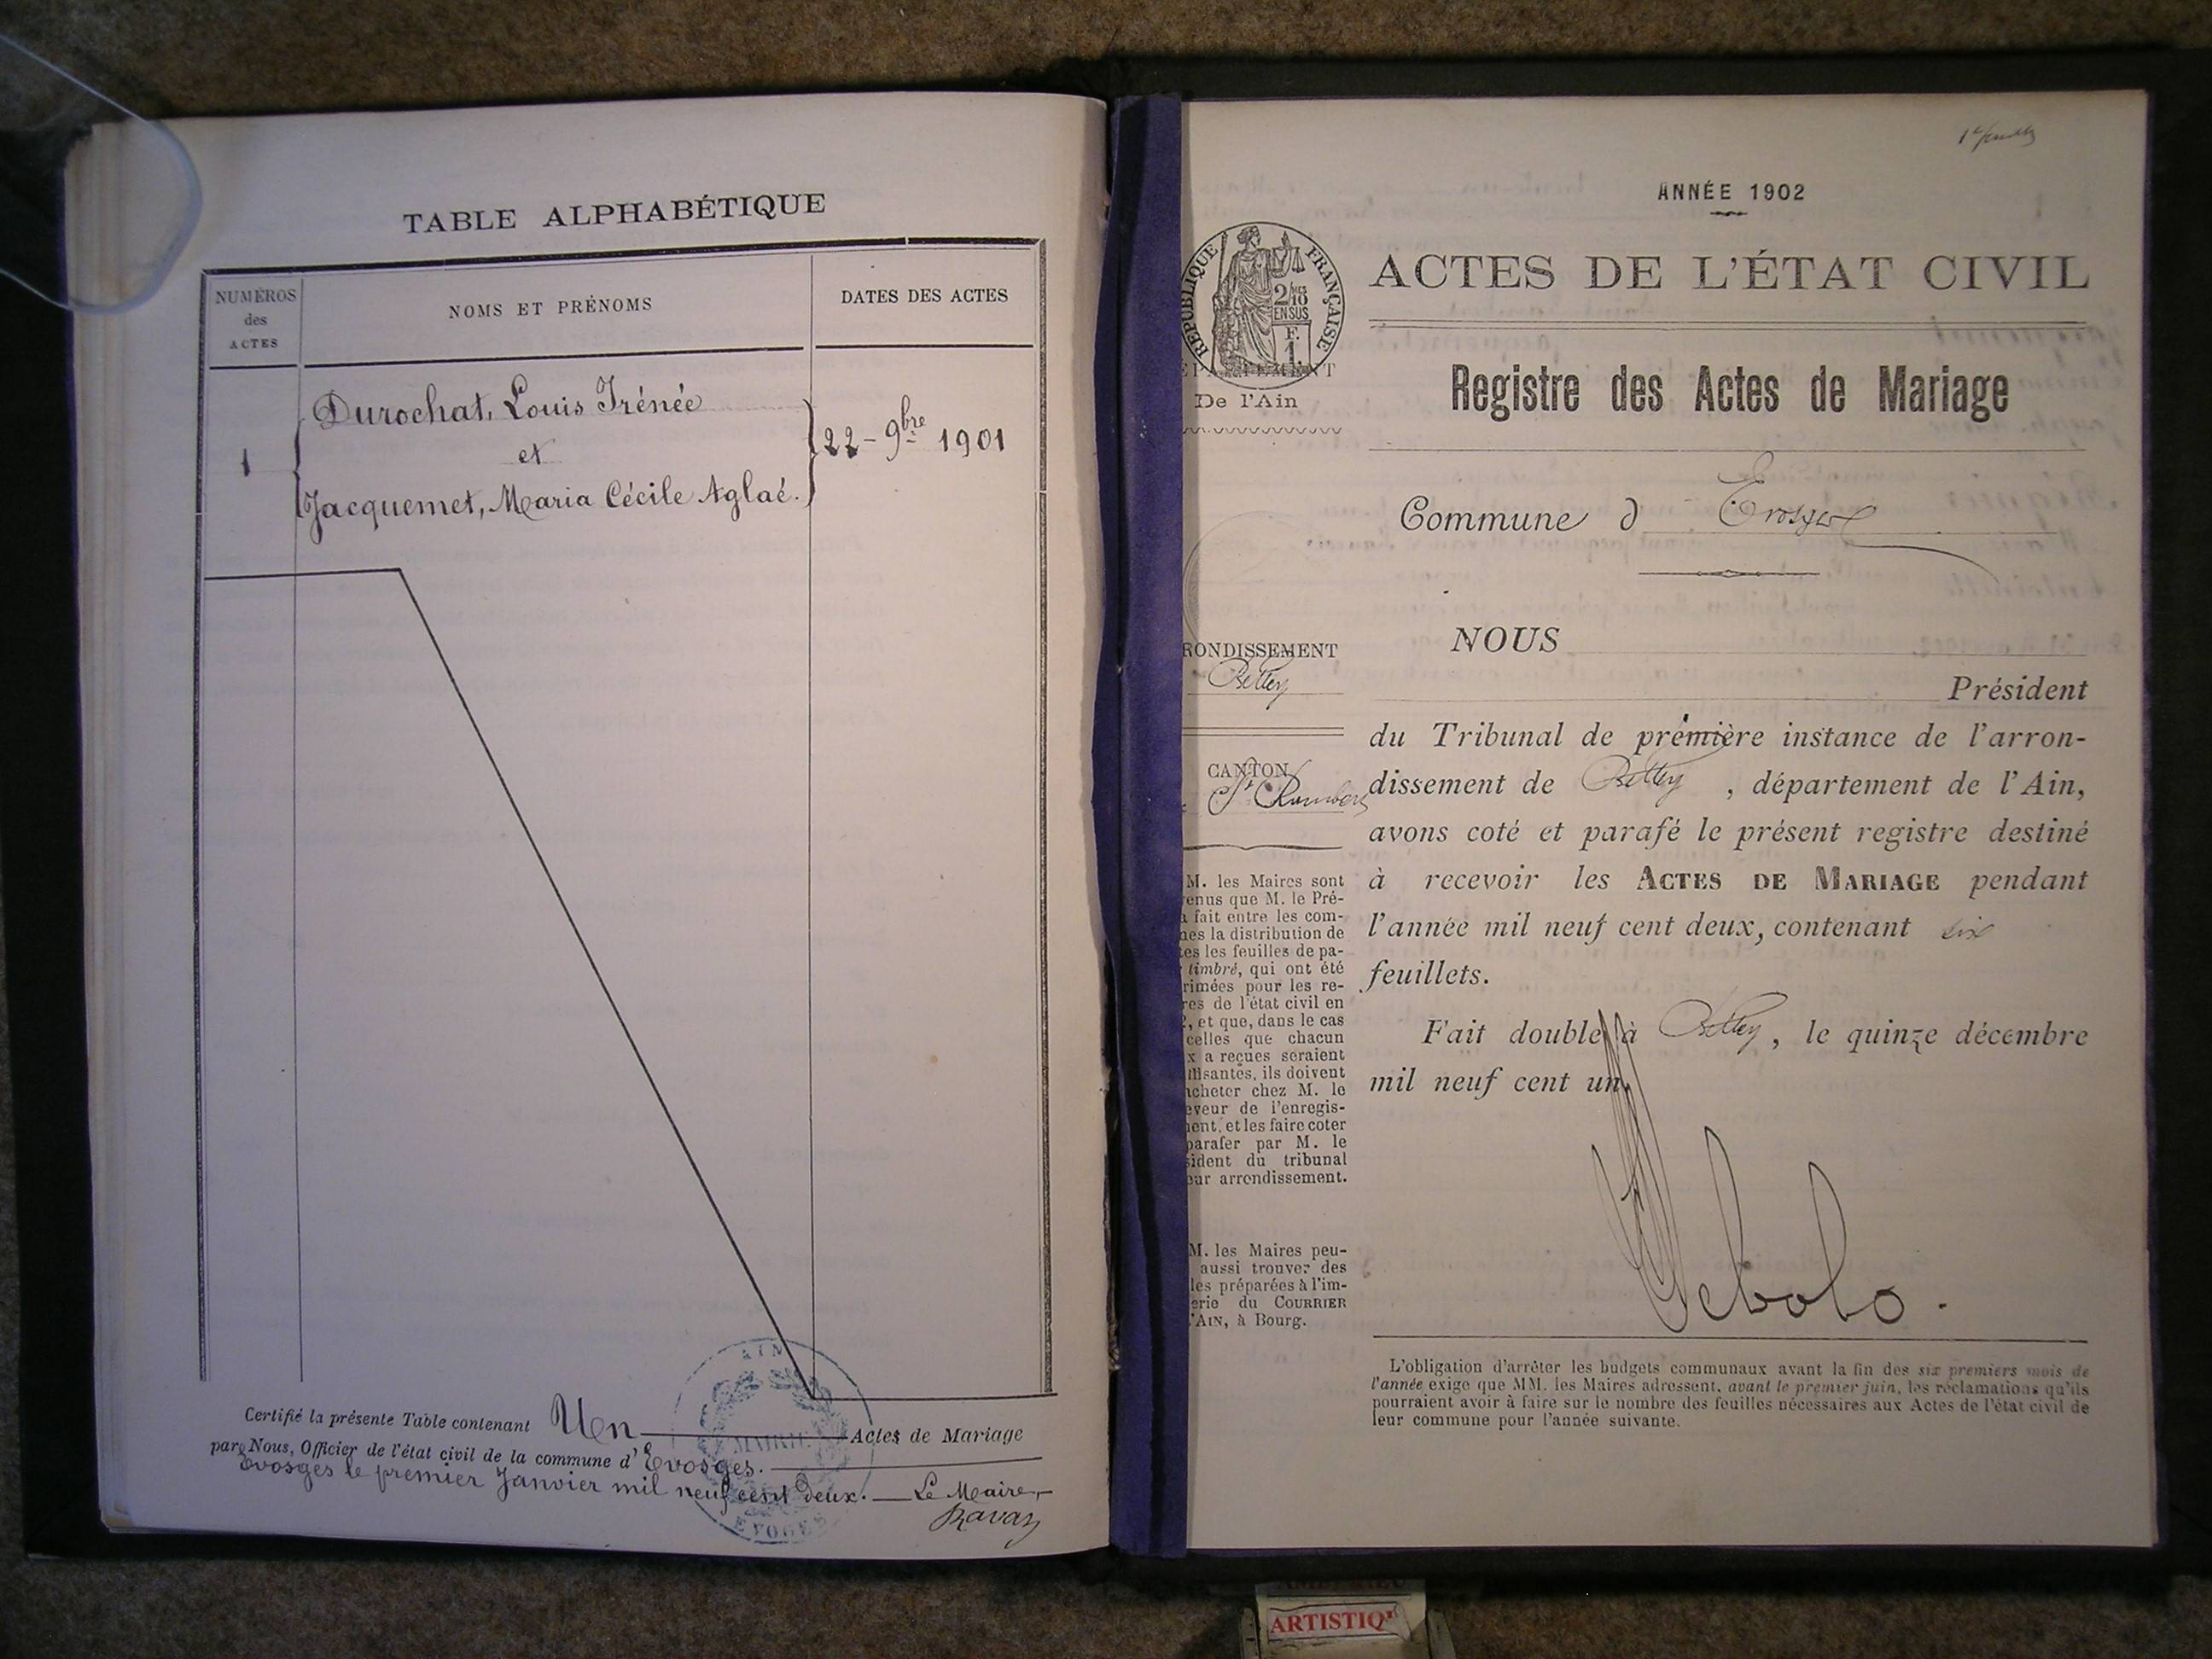 TABLE ALPHABÉTIQUE
NUMÉROS
des
ACTES
NOMS ET PRÉNOMS
DATES DES ACTES
Durochat, Louis Irénée
1
et
22 - 9bre 1901
Jacquemet, Maria Cécile Aglaé.
Certifié la présente Table contenant Un Actes de Mariage
par Nous, Officier de l'état civil de la commune d'Evosges.
Evosges le premier Janvier mil neuf cent deux. Le Maire,
Ravat
AIN
MAIRIE
EVOGES
ANNÉE 1902
RÉPUBLIQUE FRANÇAISE
2/10 MES
EN SUS
F.
1.
EPARTEMENT
De l'Ain
RONDISSEMENT
Belley
CANTON
St Rambert
M. les Maires sont
enus que M. le Pré-
a fait entre les com-
nes la distribution de
tes les feuilles de pa-
timbré, qui ont été
rimées pour les re-
res de l'état civil en
2, et que, dans le cas
celles que chacun
x a reçues seraient
ffisantes, ils doivent
acheter chez M. le
eveur de l'enregis-
ent, et les faire coter
parafer par M. le
sident du tribunal
eur arrondissement.
M. les Maires peu-
aussi trouver des
les préparées à l'im-
erie du COURRIER
'AIN, à Bourg.
ACTES DE L'ÉTAT CIVIL
Registre des Actes de Mariage
Commune d Evosges
NOUS
Président
du Tribunal de première instance de l'arron-
dissement de Belley, département de l'Ain,
avons coté et parafé le présent registre destiné
à recevoir les ACTES DE MARIAGE pendant
l'année mil neuf cent deux, contenant six
feuillets.
Fait double à Belley, le quinze décembre
mil neuf cent un.
L'obligation d'arrêter les budgets communaux avant la fin des six premiers mois de
l'année exige que MM. les Maires adressent, avant le premier juin, les réclamations qu'ils
pourraient avoir à faire sur le nombre des feuilles nécessaires aux Actes de l'état civil de
leur commune pour l'année suivante.
ARTISTIQ